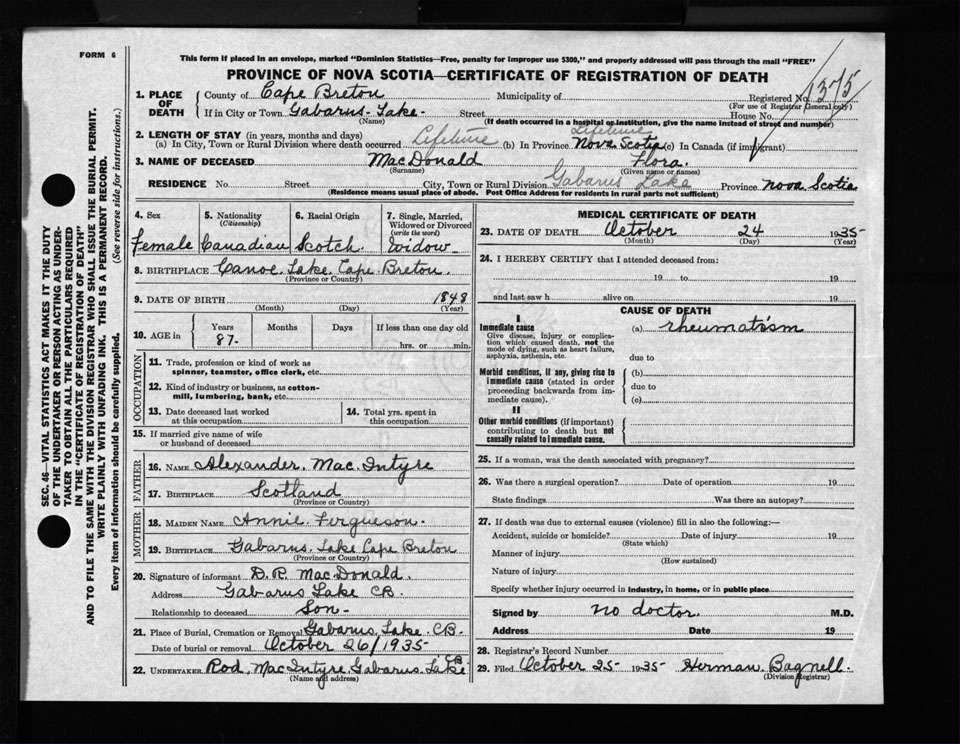 FORM 6
This form if placed in an envelope, marked "Dominion Statistics—Free, penalty for improper use $300," and properly addressed will pass through the mail "FREE"
PROVINCE OF NOVA SCOTIA—CERTIFICATE OF REGISTRATION OF DEATH
SEC. 46—VITAL STATISTICS ACT MAKES IT THE DUTY
OF THE UNDERTAKER OR PERSON ACTING AS UNDER-
TAKER TO OBTAIN ALL THE PARTICULARS REQUIRED
IN THE "CERTIFICATE OF REGISTRATION OF DEATH"
AND TO FILE THE SAME WITH THE DIVISION REGISTRAR WHO SHALL ISSUE THE BURIAL PERMIT.
WRITE PLAINLY WITH UNFADING INK. THIS IS A PERMANENT RECORD.
Every item of information should be carefully supplied. (See reverse side for instructions.)
1. PLACE OF DEATH
County of Cape Breton Municipality of Registered No. 1375
(For use of Registrar General only)
If in City or Town Gabarus-Lake- Street House No.
(Name) (If death occurred in a hospital or institution, give the name instead of street and number)
2. LENGTH OF STAY (in years, months and days)
Lifetime
(a) In City, Town or Rural Division where death occurred Lifetime (b) In Province Nova Scotia (c) In Canada (if immigrant)
3. NAME OF DECEASED MacDonald Flora.
(Surname) (Given name or names)
RESIDENCE No. Street City, Town or Rural Division Gabarus Lake Province Nova Scotia
(Residence means usual place of abode. Post Office Address for residents in rural parts not sufficient)
4. Sex
Female
5. Nationality
(Citizenship)
Canadian
6. Racial Origin
Scotch.
7. Single, Married,
Widowed or Divorced
(write the word)
Widow
8. BIRTHPLACE Canoe Lake Cape Breton.
(Province or Country)
9. DATE OF BIRTH 1848
(Month) (Day) (Year)
10. AGE in
Years Months Days If less than one day old
87. hrs. or min.
OCCUPATION
11. Trade, profession or kind of work as
spinner, teamster, office clerk, etc.
12. Kind of industry or business, as cotton-
mill, lumbering, bank, etc.
13. Date deceased last worked
at this occupation
14. Total yrs. spent in
this occupation
15. If married give name of wife
or husband of deceased
FATHER
16. NAME Alexander. MacIntyre
17. BIRTHPLACE Scotland
(Province or Country)
MOTHER
18. MAIDEN NAME Annie Fergueson-
19. BIRTHPLACE Gabarus. Lake Cape Breton
(Province or Country)
20. Signature of informant D. R. MacDonald.
Address Gabarus Lake CB.
Relationship to deceased Son-
21. Place of Burial, Cremation or Removal Gabarus. Lake. CB.
Date of burial or removal October 26/1935
22. UNDERTAKER Rod, MacIntyre Gabarus. Lake CB
(Name and address)
MEDICAL CERTIFICATE OF DEATH
23. DATE OF DEATH October 24 1935-
(Month) (Day) (Year)
24. I HEREBY CERTIFY that I attended deceased from:
19 to 19
and last saw h alive on 19
CAUSE OF DEATH
I
Immediate cause
Give disease, injury or complica-
tion which caused death, not the
mode of dying, such as heart failure,
asphyxia, asthenia, etc.
(a) rheumatism
due to
Morbid conditions, if any, giving rise to
immediate cause (stated in order
proceeding backwards from im-
mediate cause).
(b)
due to
(c)
II
Other morbid conditions (if important)
contributing to death but not
causally related to immediate cause.
25. If a woman, was the death associated with pregnancy?
26. Was there a surgical operation? Date of operation 19
State findings Was there an autopsy?
27. If death was due to external causes (violence) fill in also the following:—
Accident, suicide or homicide? Date of injury 19
(State which)
Manner of injury
(How sustained)
Nature of injury
Specify whether injury occurred in industry, in home, or in public place
Signed by no doctor. M.D.
Address Date 19
28. Registrar's Record Number
29. Filed October 25- 1935- Herman. Bagnell.
(Division Registrar)